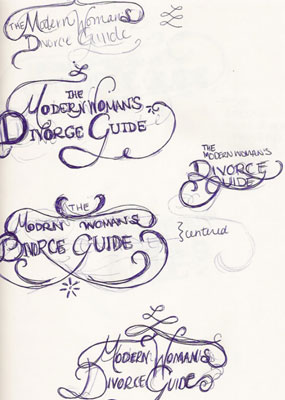 THE Modern Woman's
Divorce Guide
THE
MODERN WOMAN'S
DIVORCE GUIDE
THE
MODERN WOMAN'S
DIVORCE
GUIDE
THE
MODRN WOMAN'S
DIVORCE GUIDE
}centered
MODERN WOMAN'S
DIVORCE GUIDE